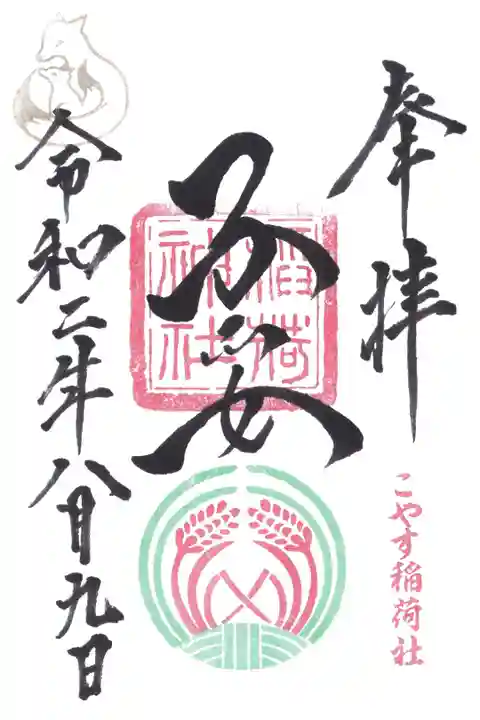 奉拝
こやす稲荷社
子安
稲荷神社
令和二年八月九日